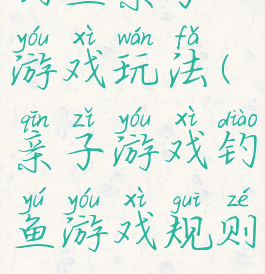 yóu xì wán fǎ
游戏玩法(
qīn zǐ yóu xì diào
亲子游戏钓
yú yóu xì guī zé
鱼游戏规则